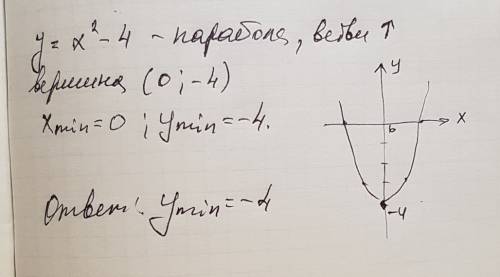 y = x² - 4 - парабола, ветви ↑
вершина (0 ; -4)
x min = 0 ; y min = -4.
Ответ: y min = -4
y
x
0
-4